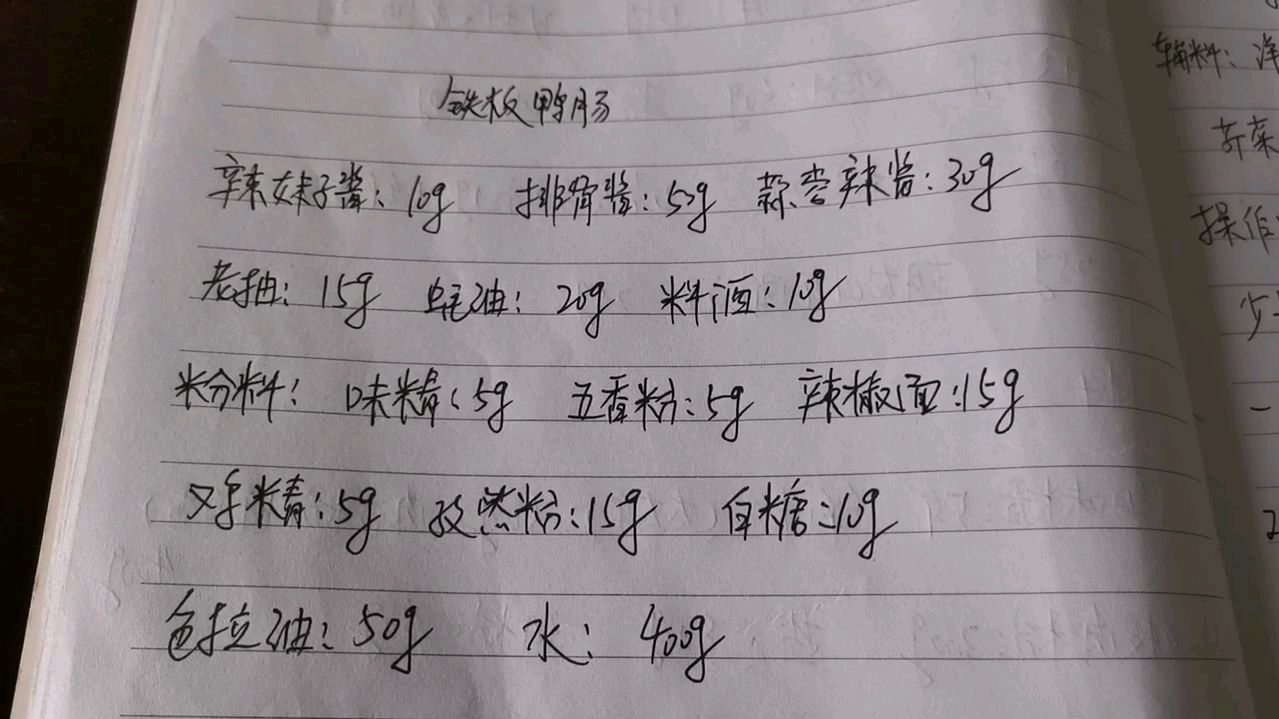 铁板鸭肠
辣妹子酱：10g 排骨酱：50g 蒜蓉辣酱：30g
老抽：15g 蚝油：20g 料酒：10g
粉料：味精：5g 五香粉：5g 辣椒面：15g
鸡精：5g 孜然粉：15g 白糖：10g
色拉油：50g 水：400g
辅料：净
芥菜
操作
少
一